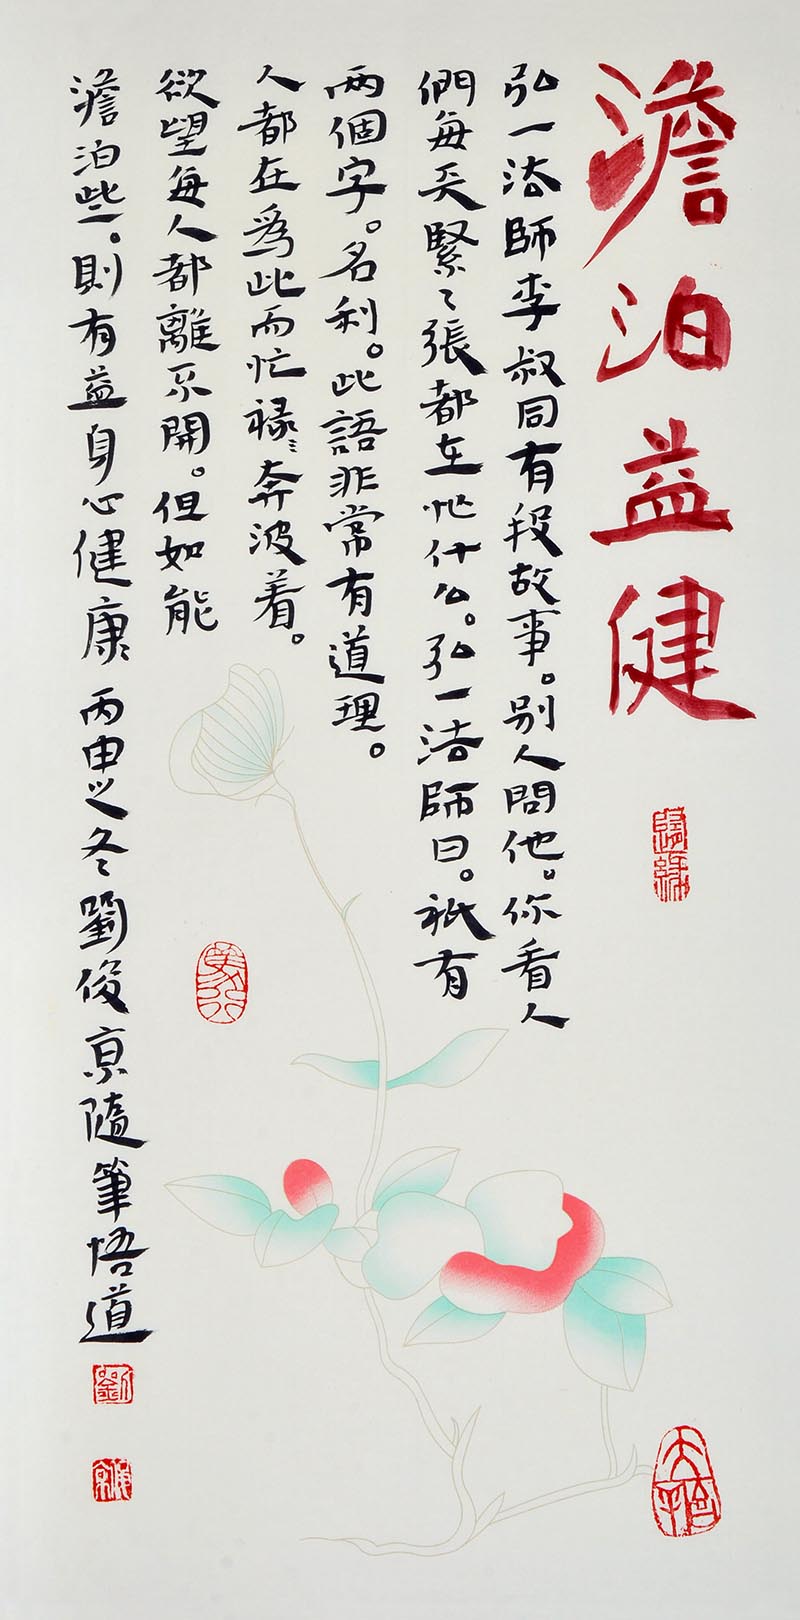 澹泊益健
弘一法師李叔同有段故事。别人問他。你看人
們每天緊々張都在忙什么。弘一法師曰。祇有
兩個字。名利。此語非常有道理。
人都在為此而忙碌々奔波着。
欲望每人都離不開。但如能
澹泊些。則有益身心健康 丙申之冬劉俊京隨筆悟道
劉
俊京